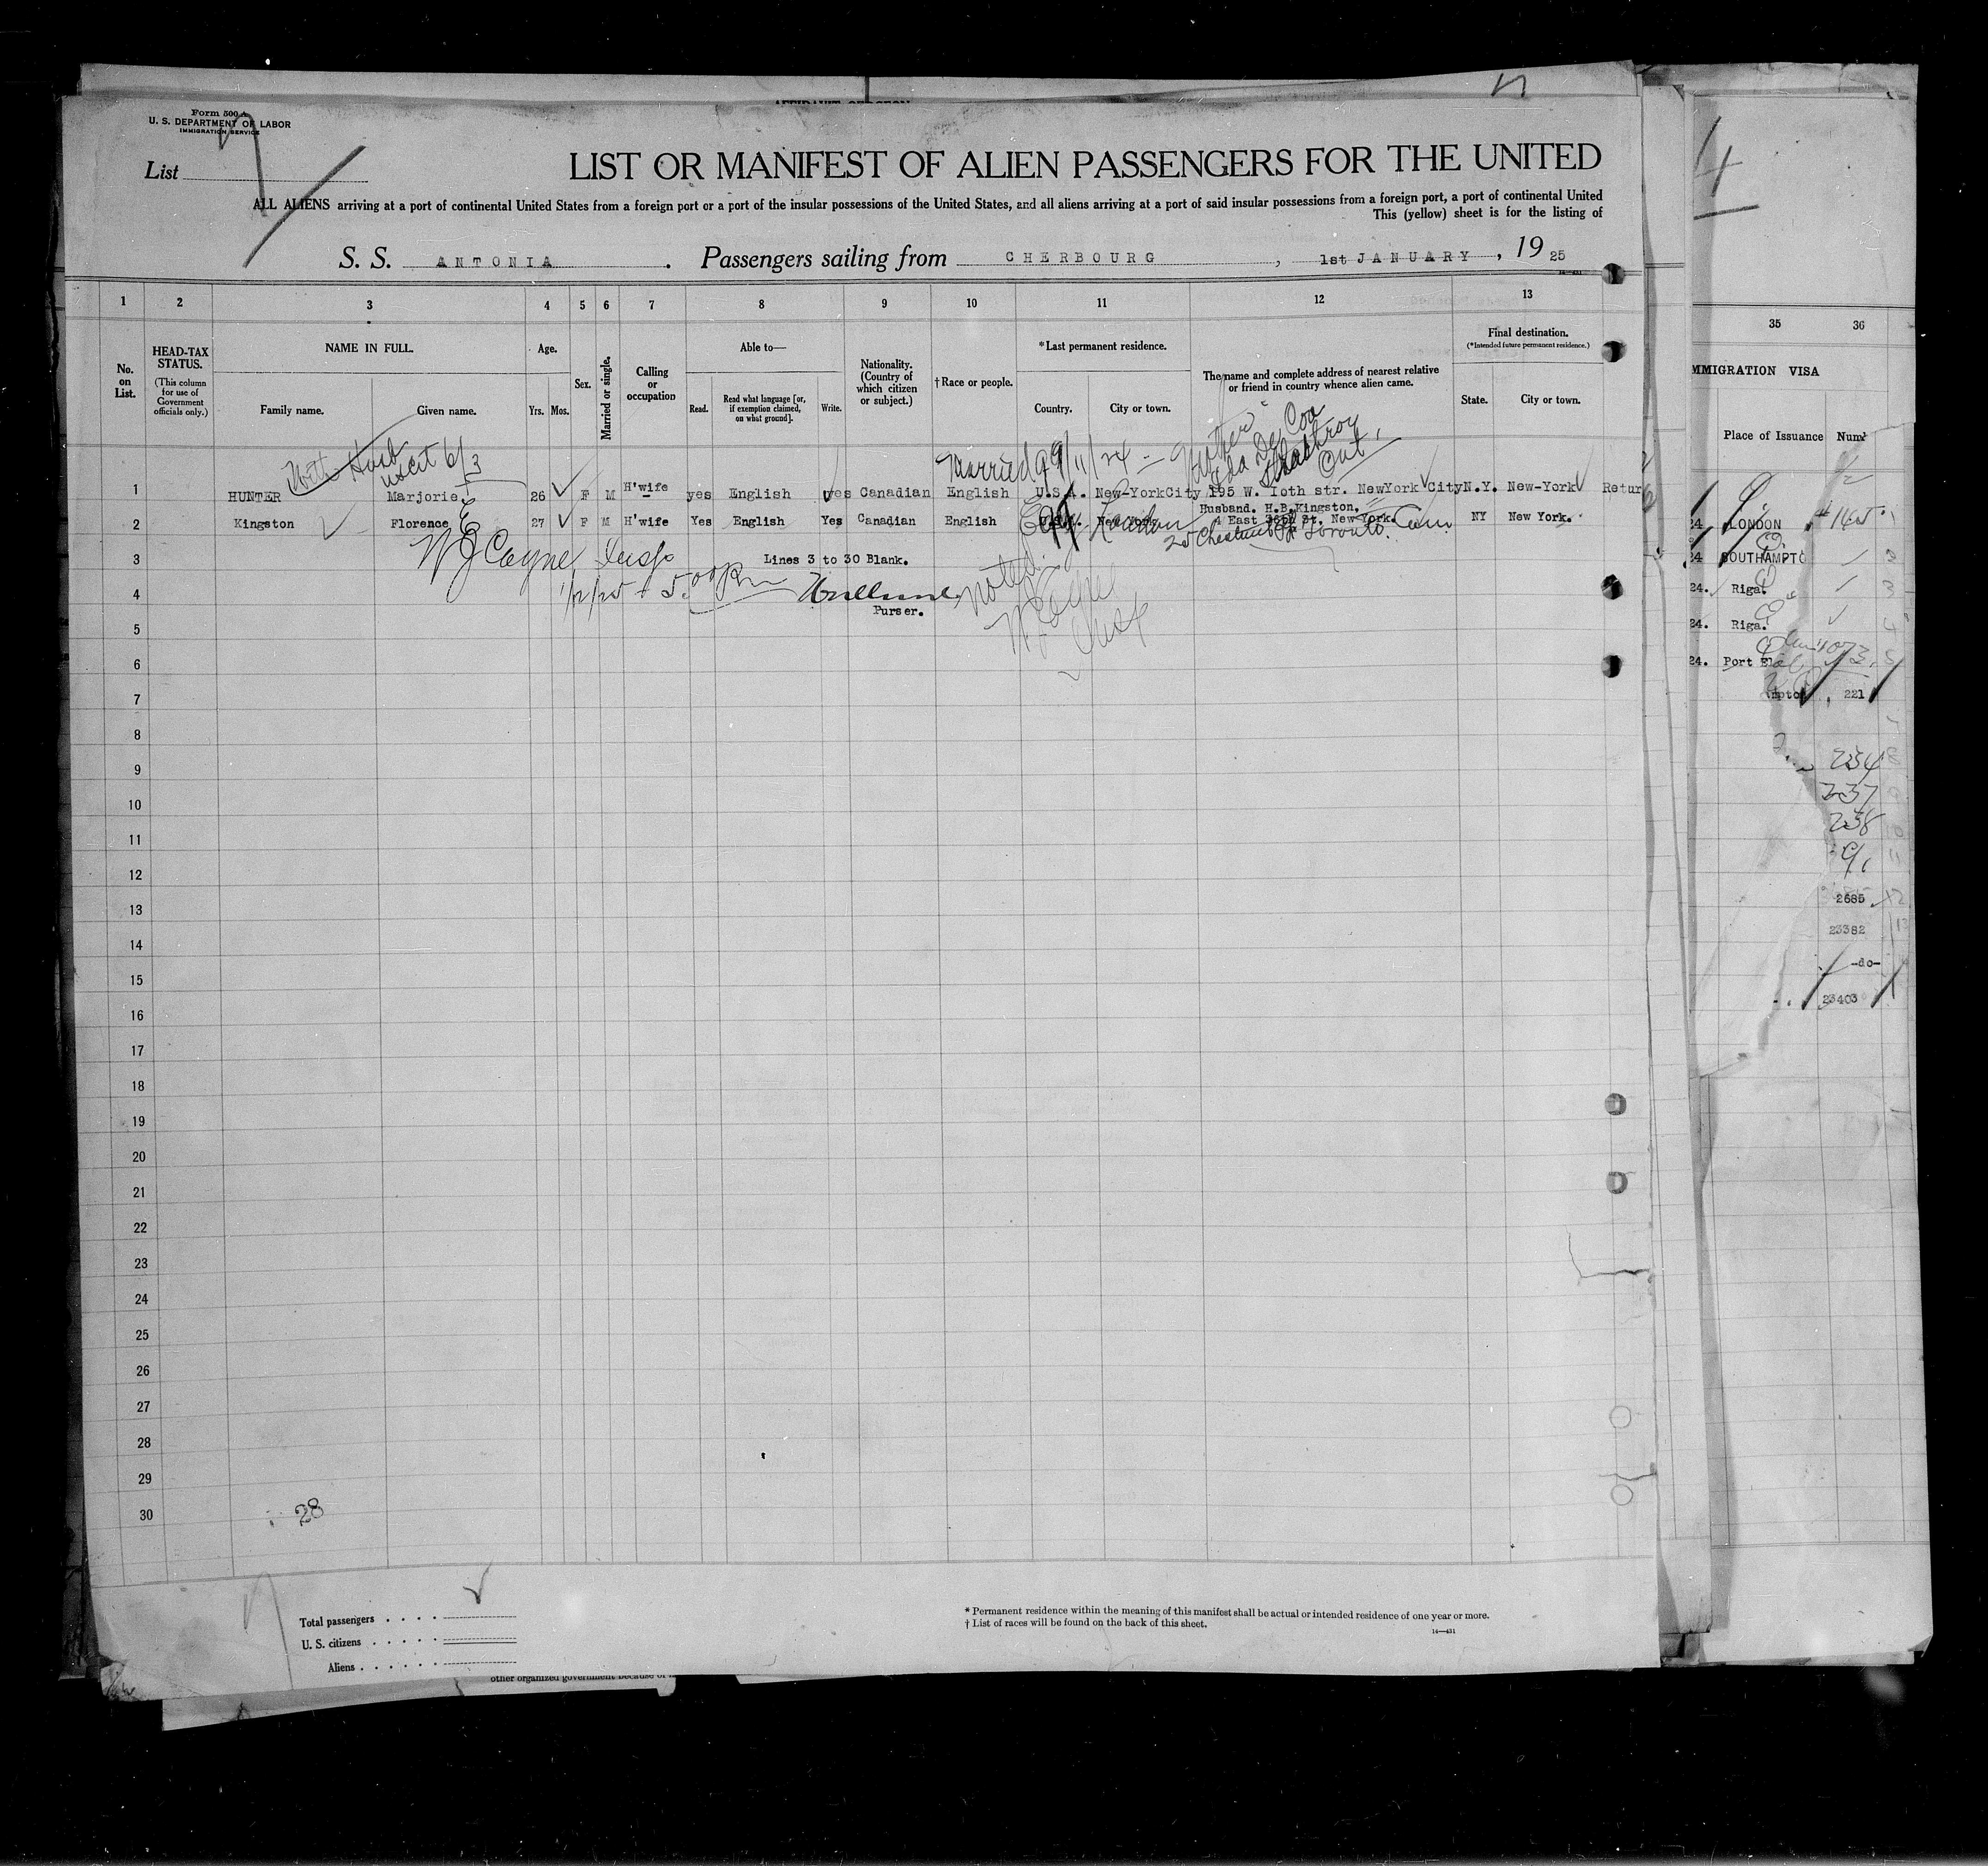 Form 500 A
U. S. DEPARTMENT OF LABOR
IMMIGRATION SERVICE
List
7
LIST OR MANIFEST OF ALIEN PASSENGERS FOR THE UNITED
ALL ALIENS arriving at a port of continental United States from a foreign port or a port of the insular possessions of the United States, and all aliens arriving at a port of said insular possessions from a foreign port, a port of continental United
This (yellow) sheet is for the listing of
S. S. ANTONIA. Passengers sailing from CHERBOURG, 1st JANUARY, 19 25
1 2 3 4 5 6 7 8 9 10 11 12 13
No. on List.
HEAD-TAX STATUS.
(This column for use of Government officials only.)
NAME IN FULL.
Family name.
Given name.
Age.
Yrs. Mos.
Sex.
Married or single.
Calling or occupation
Able to—
Read.
Read what language [or, if exemption claimed, on what ground].
Write.
Nationality. (Country of which citizen or subject.)
† Race or people.
* Last permanent residence.
Country.
City or town.
The name and complete address of nearest relative or friend in country whence alien came.
Final destination.
(* Intended future permanent residence.)
State.
City or town.
With Husb
Married 9/11/24 - Mother
Strathroy
Ont.
1 HUNTER Marjorie 26 F M H'wife yes English yes Canadian English U.S.A. New-YorkCity 195 W. Ioth str. NewYork City N.Y. New-York Retur
2 Kingston Florence 27 F M H'wife Yes English Yes Canadian English Eng. London Husband. H.B.Kingston, 4 East 36th St. New York. NY New York.
25 Chestnut Toronto. Can
3 W J Coyne Insp Lines 3 to 30 Blank.
4 1/12/25 - 5.00 Pm
noted
Purser.
5
6
7
8
9
10
11
12
13
14
15
16
17
18
19
20
21
22
23
24
25
26
27
28
29
30
28
Total passengers . . . .
U. S. citizens . . . . .
Aliens . . . . . .
* Permanent residence within the meaning of this manifest shall be actual or intended residence of one year or more.
† List of races will be found on the back of this sheet.
14—431
other organized government because of
4
35 36
MMIGRATION VISA
Place of Issuance
Num
24, LONDON #145
24 SOUTHAMPTO
24. Riga.
24. Riga.
24. Port El
mpton 221
234
237
238
2685
23382
-do-
23403